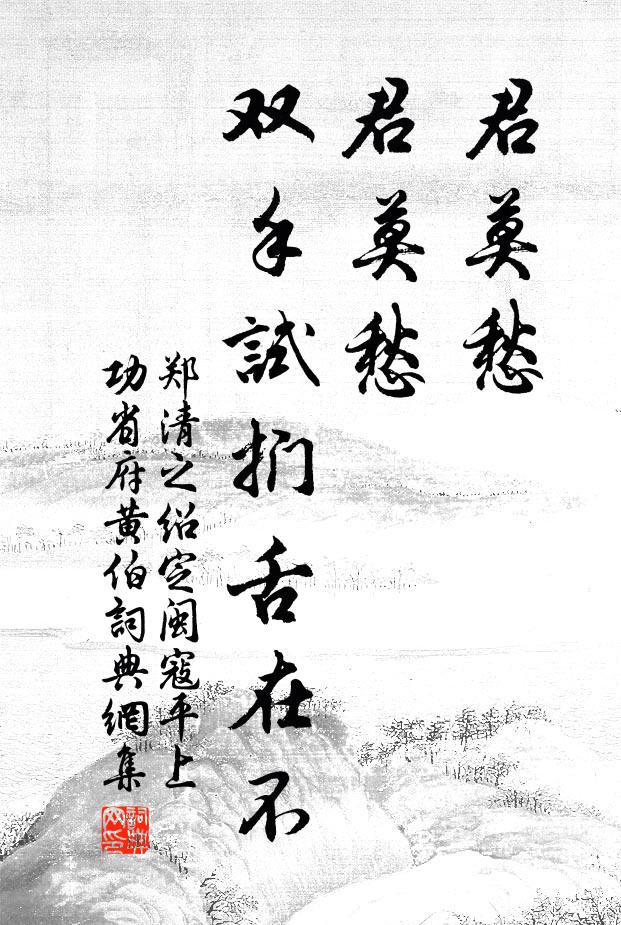 君莫愁
君莫愁
双手試捫舌在不
郑清之绍定闽寇平上
功省府黄伯詞典網集